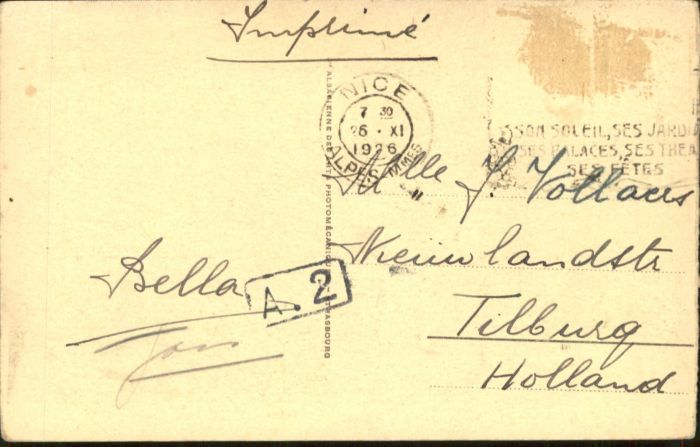 Imprimé
NICE
7 30
26 • XI
1926
ALPES MMES
SON SOLEIL, SES JARDI
SES PALACES, SES THEA
SES FÊTES
Mlle J. Vollaers
Nieuwlandstr
Tilburg
Holland
Bella
A. 2
ALSACIENNE DES ARTS PHOTOMÉCANIQUES STRASBOURG